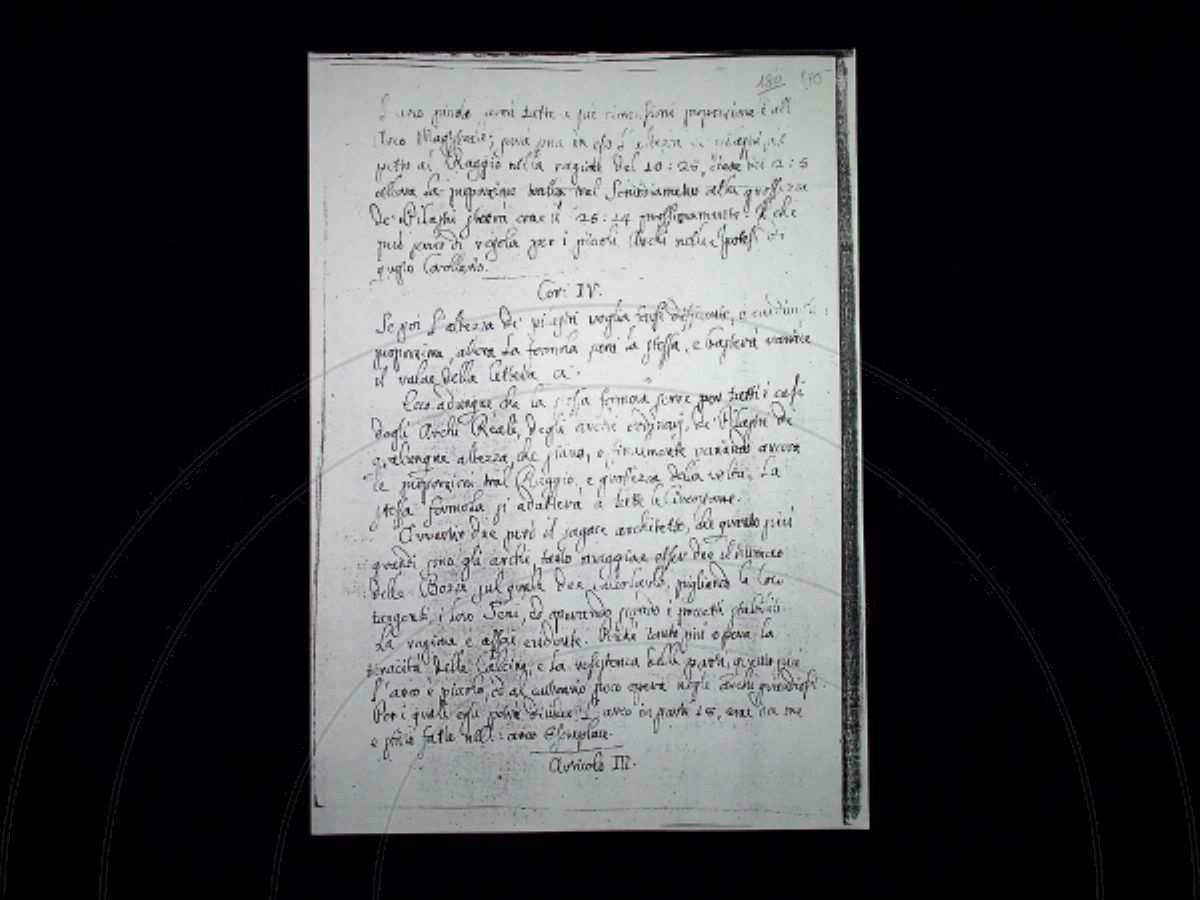 180
L'arco piccolo avrà tutte e sue dimensioni proporzionate all'
Arco ; sarà una in esso L'altezza
petto al Raggio nella ragione del 10 : 25, 2 : 5
allora La proporzione tral Semidiametro alla grossezza
De' Pilastri sarà come il 25 : 14 prossimamente. Il che
può servir di regola per i piccoli Archi
questo Corollario.
Cor: IV.
Se poi L'altezza de' pilastri voglia farsi differente, e
proporzione, allora La formola sarà La stessa, e basterà variare
il valor della lettera a.
Ecco adunque che la stessa formola serve per tutti i casi
degli Archi Reali, degli archi ordinarj, de' Pilastri di
qualunque altezza, che siano, e finalmente variando ancora
le proporzioni tral Raggio, e grossezza della volta, La
stessa formola si adatterà a tutte le
Avvertir dee però il sagace architetto, che quanto più
grandi sono gli archi, tanto maggiore esser dee il numero
delle sul quale dee calcolarlo, pigliando le loro
tangenti, i loro Seni, ed operando secondo i precetti stabiliti.
La ragione è assai evidente. Perché tanto più opera la
tenacità della Calcina, e La resistenza delle parti, quanto più
l'arco è piccolo, ed al contrario poco opera negli archi grandiosi.
Per i quali egli potrà dividere L'arco in parti 18, come da me
è stato fatto nell' arco Esemplare.
Articolo III.